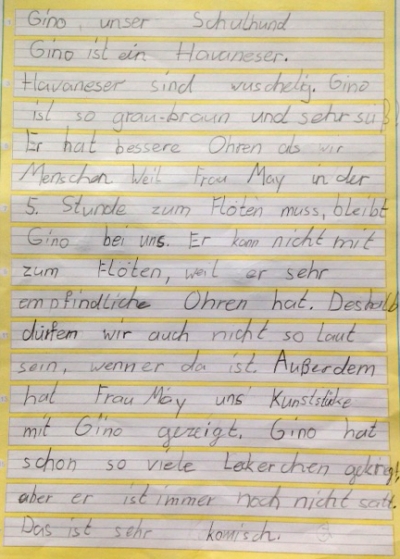 Gino, unser Schulhund
Gino ist ein Havaneser.
Havaneser sind wuschelig. Gino
ist so grau-braun und sehr süß!
Er hat bessere Ohren als wir
Menschen Weil Frau May in der
5. Stunde zum Flöten muss, bleibt
Gino bei uns. Er kann nicht mit
zum Flöten, weil er sehr
empfindliche Ohren hat. Deshalb
dürfem wir auch nicht so laut
sein, wenn er da ist. Außerdem
hat Frau May uns Kunststücke
mit Gino gezeigt. Gino hat
schon so viele Lekerchen gekriegt,
aber er ist immer noch nicht satt.
Das ist sehr komisch.